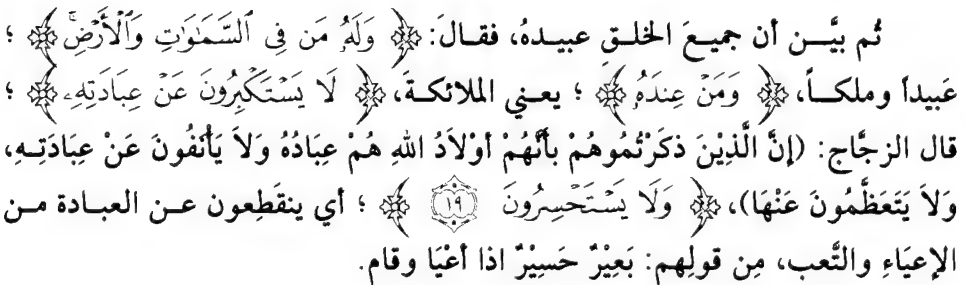 ثُم بيَّن أن جميعَ الخلقِ عبيدهُ، فقالَ: ﴿ وَلَهُۥ مَن فِى ٱلسَّمَٰوَٰتِ وَٱلْأَرْضِۚ ﴾ ؛
عَبيداً وملكاً، ﴿ وَمَنْ عِندَهُۥ ﴾ ؛ يعني الملائكةَ، ﴿ لَا يَسْتَكْبِرُونَ عَنْ عِبَادَتِهِۦ ﴾ ؛
قال الزجَّاج: (إنَّ الَّذِيْنَ ذكَرْتُمُوهُمْ بأَنَّهُمْ أوْلاَدُ اللهِ هُمْ عِبَادُهُ وَلاَ يَأْنَفُونَ عَنْ عِبَادَتِهِ،
وَلاَ يَتَعَظَّمُونَ عَنْهَا)، ﴿ وَلَا يَسْتَحْسِرُونَ ١٩ ﴾ ؛ أي ينقَطِعون عن العبادة من
الإعيَاءِ والتَّعب، مِن قولِهم: بَعِيْرٌ حَسِيْرٌ اذا أعْيَا وقام.